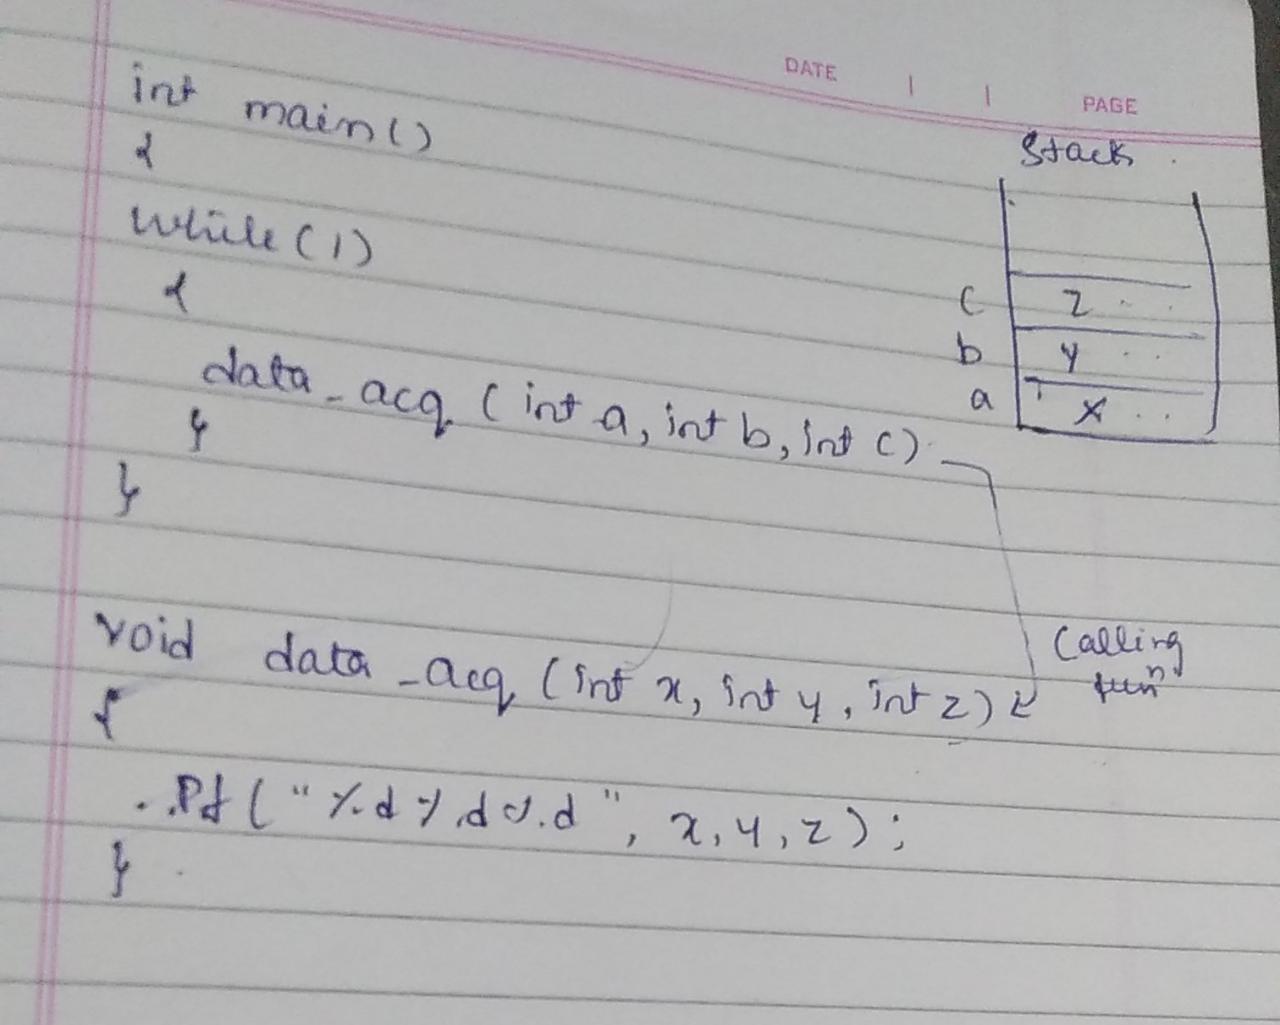 DATE | | PAGE
int main()
{
while(1)
{
data_acq (int a, int b, int c)
}
}
Stack
c z
b y
a x
void data_acq (int x, int y, int z)
Calling
funⁿ
{
Pf ("%d %d %d", x, y, z);
}